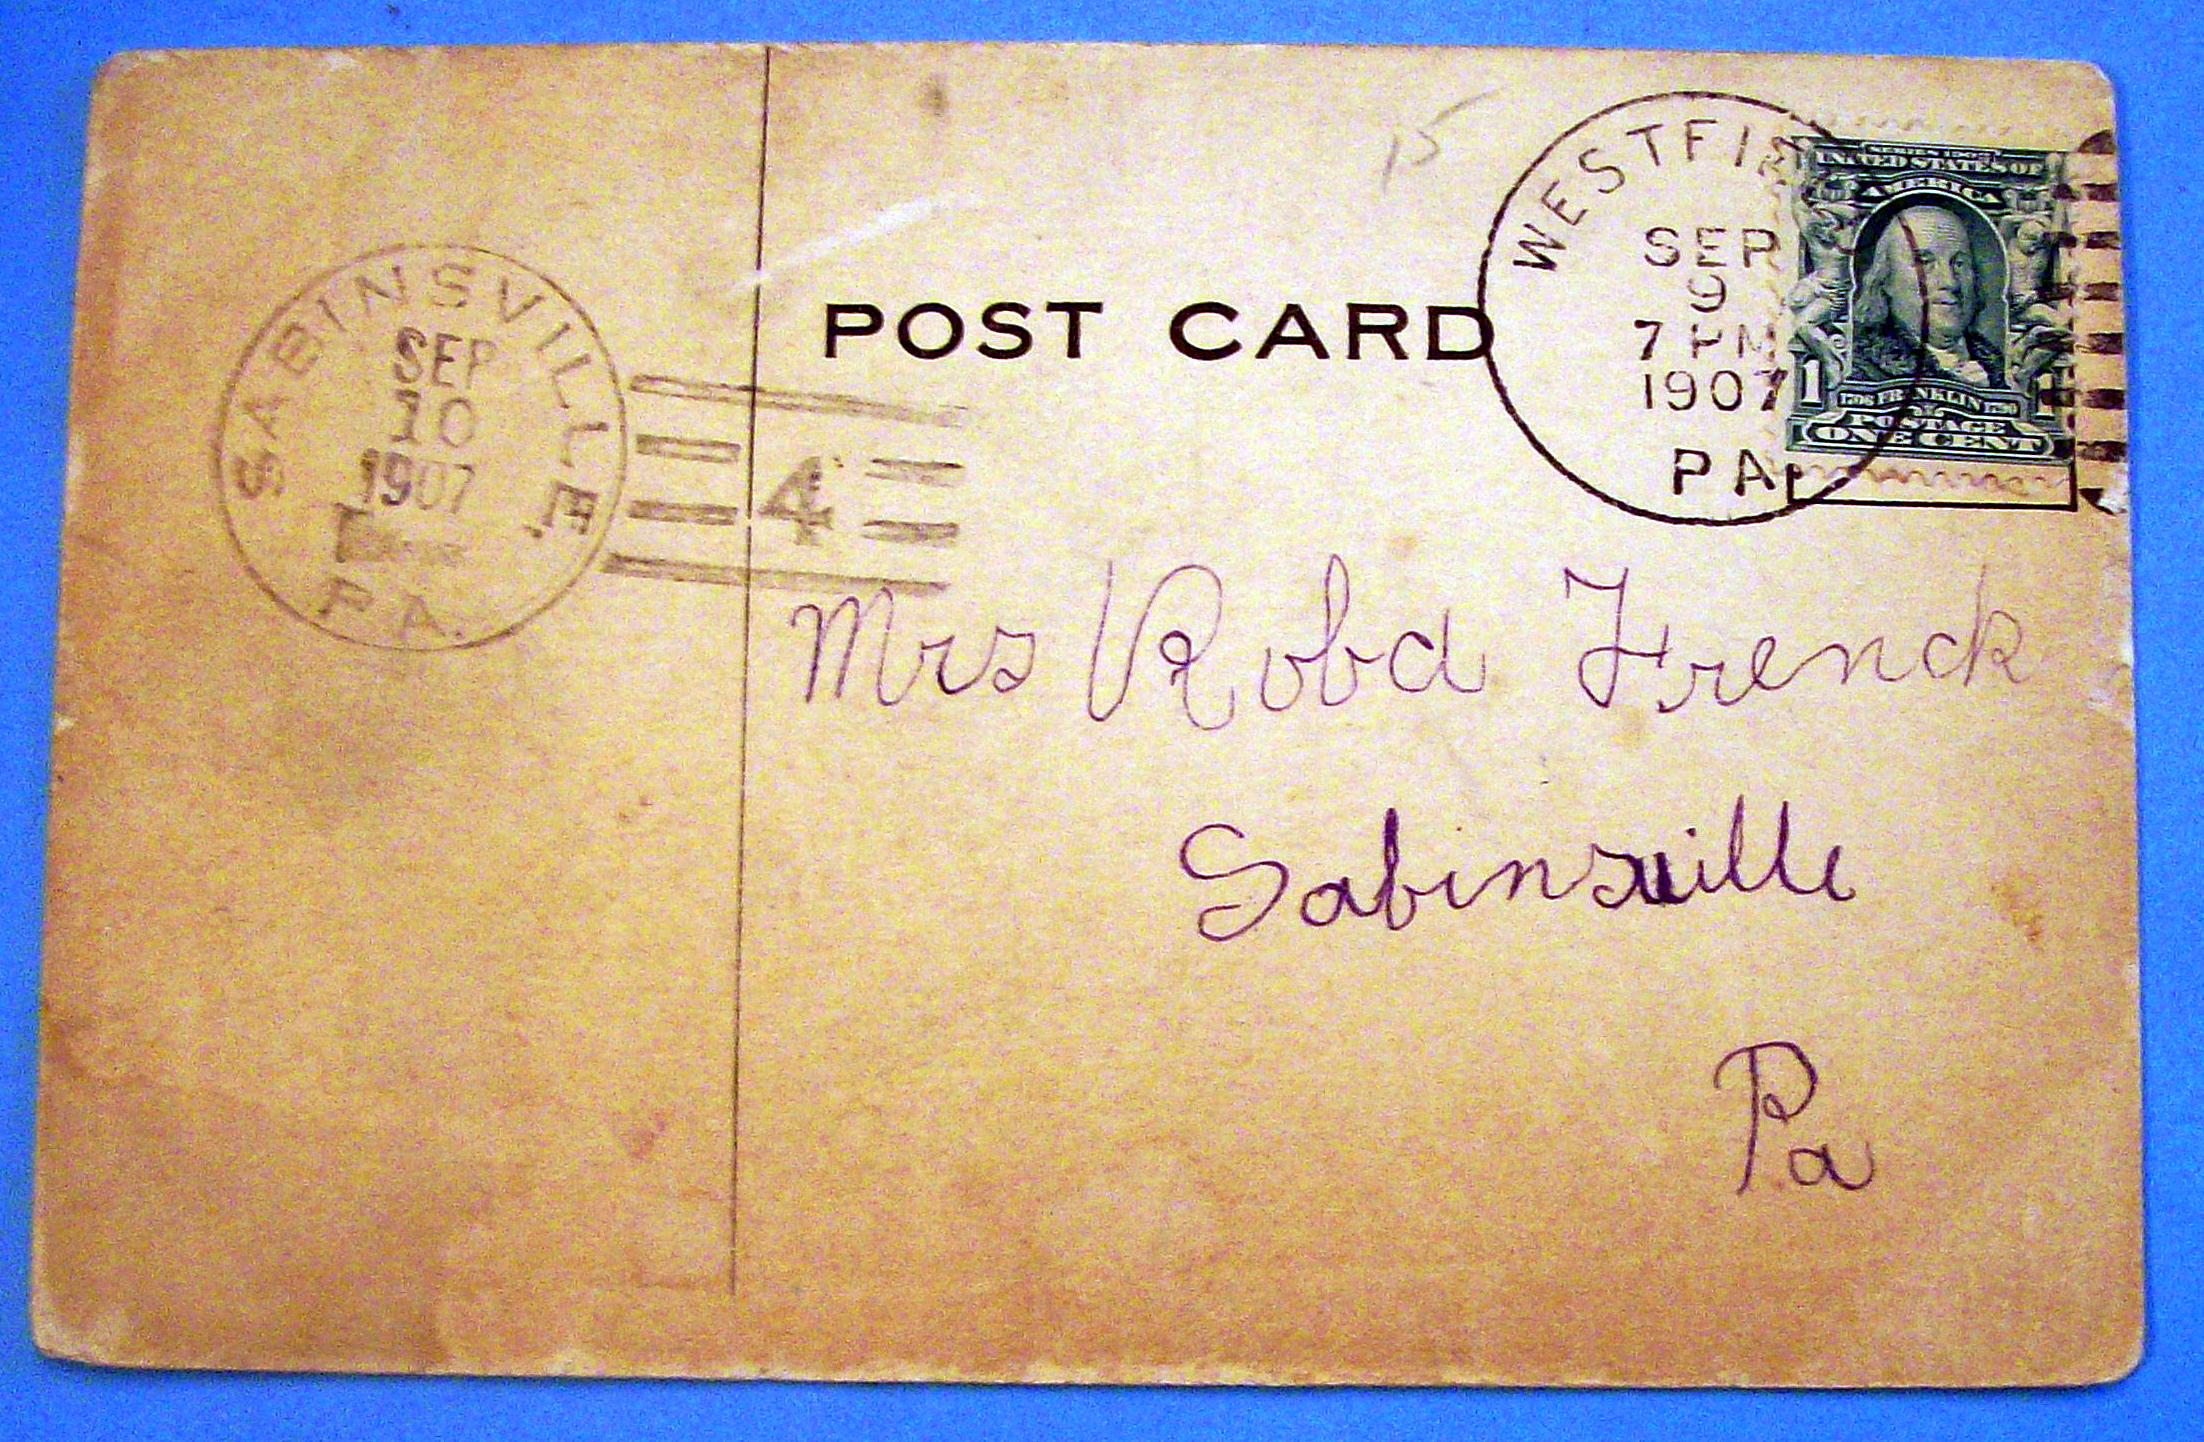 POST CARD
15
WESTFIE
SEP
9
7 PM
1907
PA.
UNITED STATES OF
AMERICA
1706 FRANKLIN 1790
POSTAGE
1 1
ONE CENT
SABINSVILLE
SEP
10
1907
PA.
4
Mrs Roba French
Sabinsville
Pa